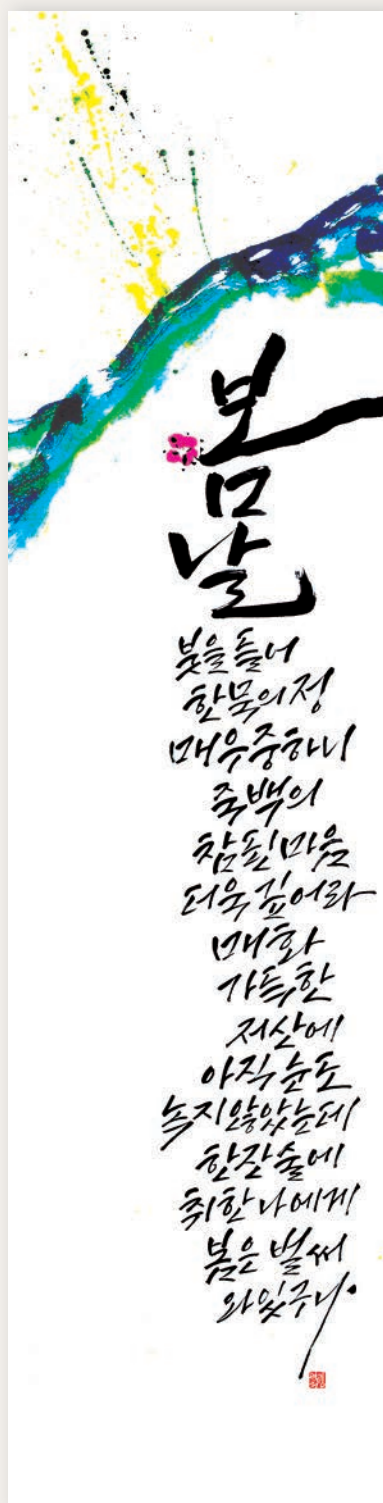 봄
날
붓을 들어
한묵의 정
매우 중하니
죽백의
참된 마음
더욱 깊어라
매화
가득한
저 산에
아직 눈도
녹지 않았는데
한잔 술에
취한 나에게
봄은 벌써
와 있구나.